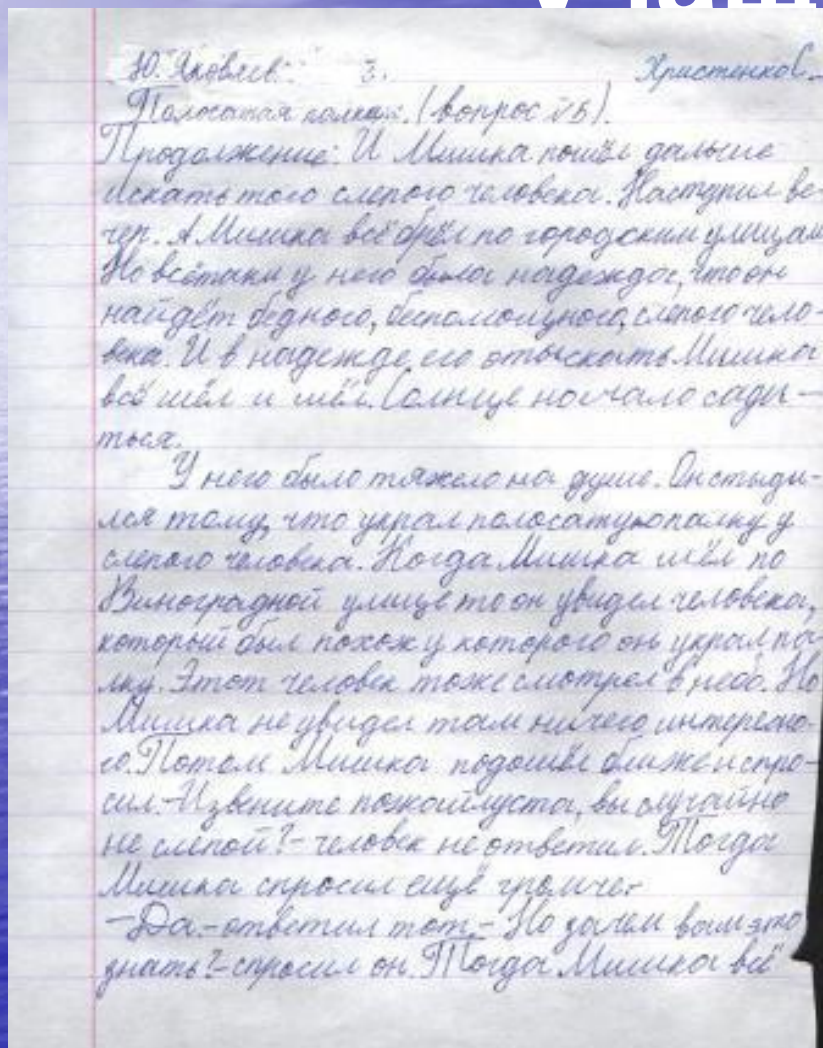 Ю. Яковлев. 3. Христенко С.
Полосатая палка. (вопрос №6).
Продолжение: И Мишка пошёл дальше
искать того слепого человека. Наступил ве-
чер. А Мишка всё брёл по городским улицам
Но всётаки у него была надежда, что он
найдёт бедного, беспомощного, слепого чело-
века. И в надежде его отыскать Мишка
всё шёл и шёл. Солнце начало сади-
ться.
У него было тяжело на душе. Он стыди-
лся тому, что украл полосатую палку у
слепого человека. Когда Мишка шёл по
Виноградной улице то он увидел человека,
который был похож у которого он украл па-
лку. Этот человек тоже смотрел в небо. Но
Мишка не увидел там ничего интересно-
го. Потом Мишка подошёл ближе и спро-
сил. -Извените пожайлуста, вы случайно
не слепой? - человек не ответил. Тогда
Мишка спросил ещё громче.-
-Да.-ответил тот.- Но зачем вам это
знать?-спросил он. Тогда Мишка всё